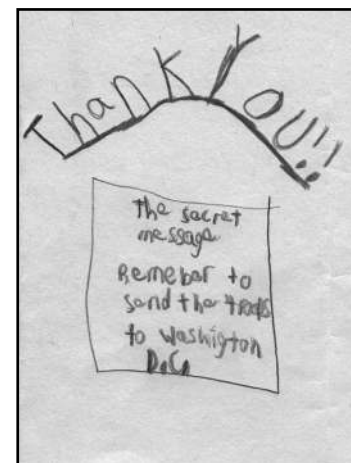 Thank YOU!!
The secret
message
Remebar to
send the
to Washigton
D.C.